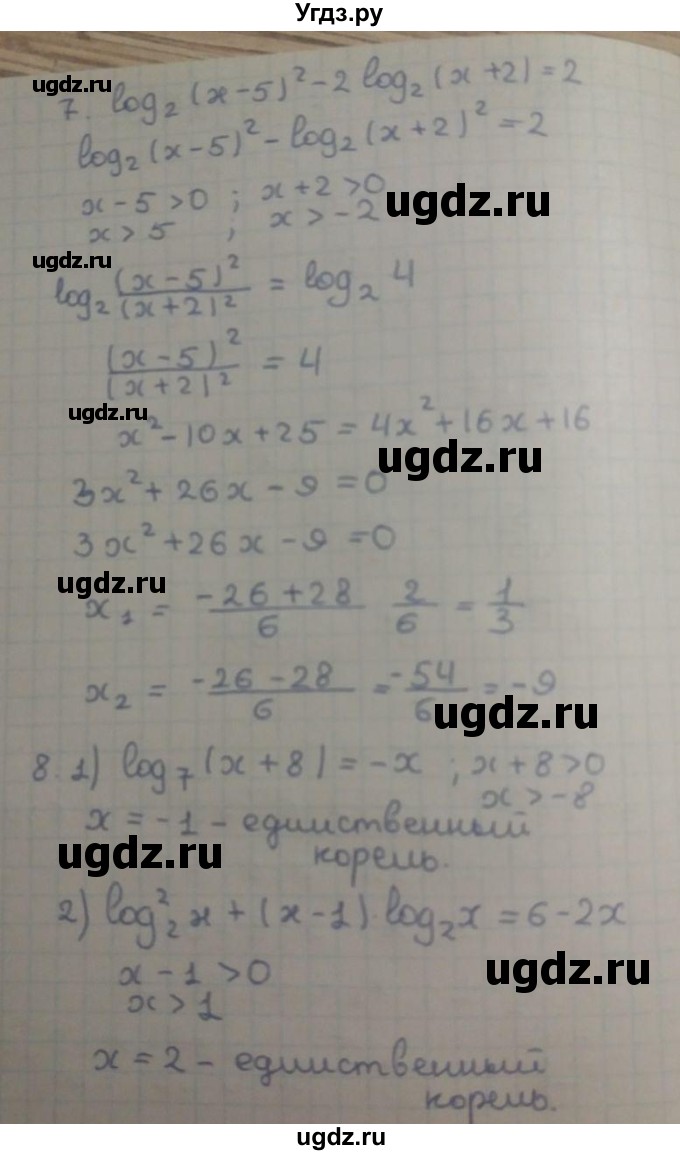 Угдз.ру
ugdz.ru
7. log₂(x-5)²-2 log₂(x+2)=2
log₂(x-5)²-log₂(x+2)²=2
x-5>0 ; x+2>0
ugdz.ru
x>5 ; x>-2
ugdz.ru
log₂ (x-5)²/(x+2)² = log₂ 4
(x-5)²/(x+2)² = 4
ugdz.ru
x²-10x+25 = 4x²+16x+16
ugdz.ru
3x²+26x-9=0
3x²+26x-9=0
ugdz.ru
x₁ = (-26+28)/6 2/6 = 1/3
x₂ = (-26-28)/6 = -54/6 = -9
ugdz.ru
8. 1) log₇(x+8)=-x ; x+8>0
x>-8
x=-1 - единственный
ugdz.ru
корень.
2) log₂²x+(x-1)·log₂x=6-2x
x-1>0
ugdz.ru
x>1
x=2 - единственный
корень.
ugdz.ru